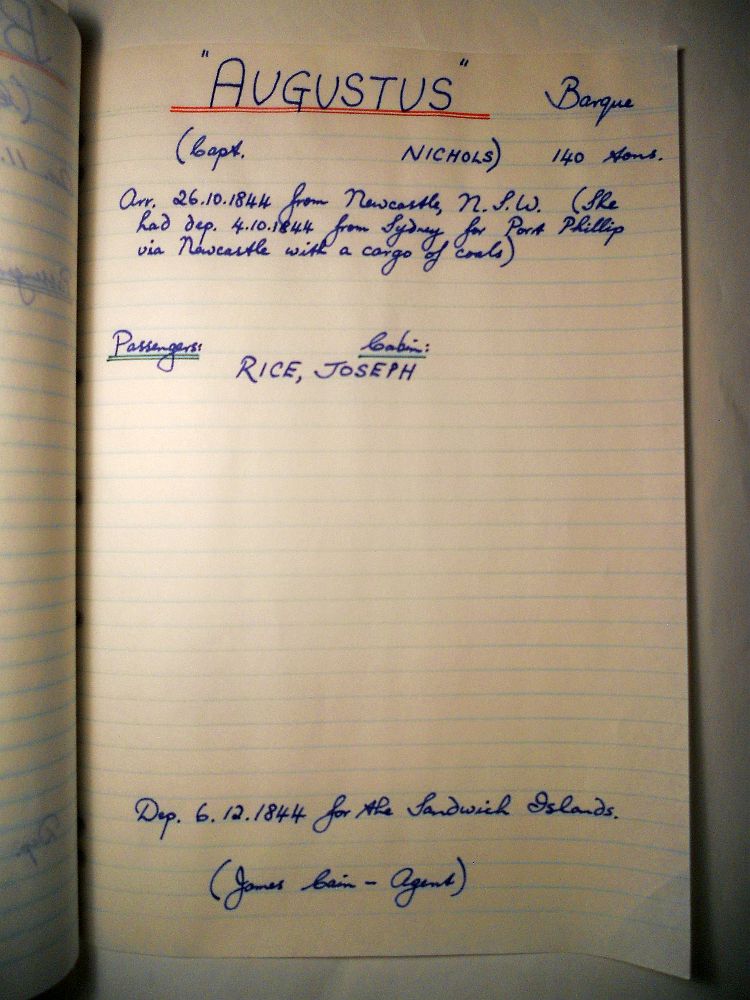 "AUGUSTUS" Barque
(Capt. NICHOLS) 140 tons.
Arr. 26.10.1844 from Newcastle, N.S.W. (She
had dep. 4.10.1844 from Sydney for Port Phillip
via Newcastle with a cargo of coals)
Passengers: Cabin:
RICE, JOSEPH
Dep. 6.12.1844 for the Sandwich Islands.
(James Cain - Agent)